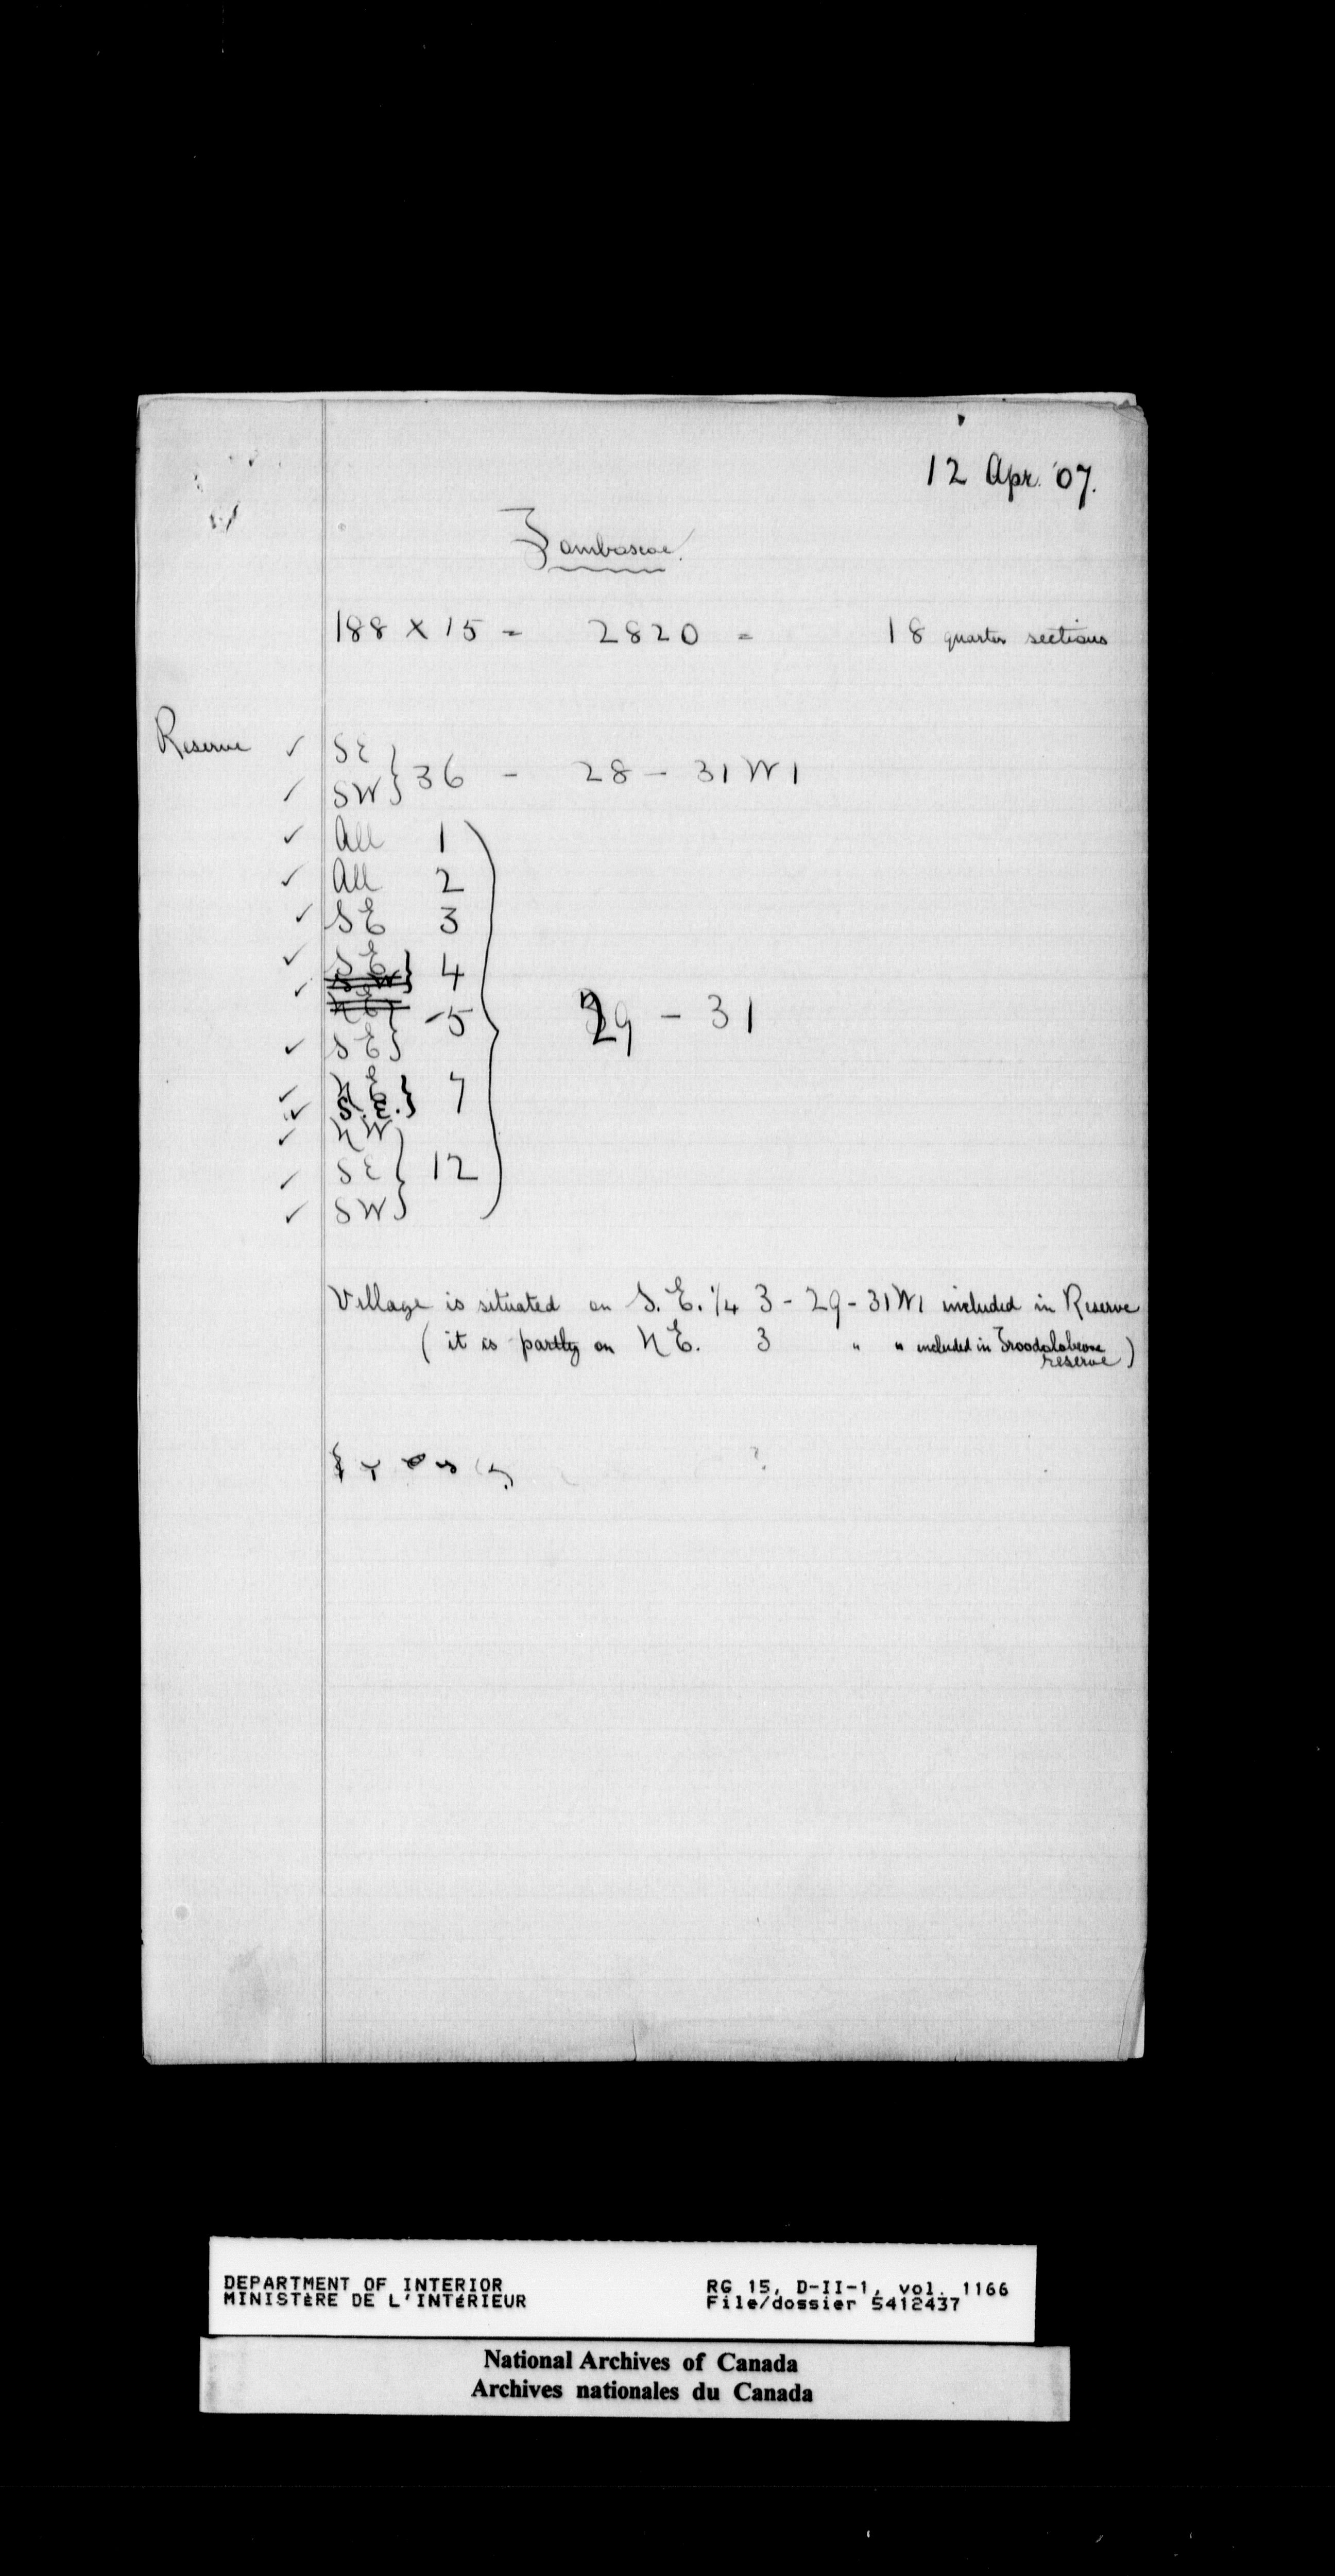 12 Apr. '07.
Tambascoe.
188 X 15 = 2820 = 18 quarter sections
Reserve ✓ SE
✓ SW } 36 - 28 - 31 W 1
✓ All 1
✓ All 2
✓ SE 3
✓ SE } 4
✓ SW
NE } 5 29 - 31
✓ SE
✓ NE } 7
✓ S.E.
✓ NW
✓ SE } 12
✓ SW
Village is situated on S.E. 1/4 3 - 29 - 31 W1 included in Reserve
( it is partly on NE. 3 " " included in Troodolabeone
reserve )
DEPARTMENT OF INTERIOR
MINISTÈRE DE L'INTÉRIEUR
RG 15, D-II-1, vol. 1166
File/dossier 5412437
National Archives of Canada
Archives nationales du Canada